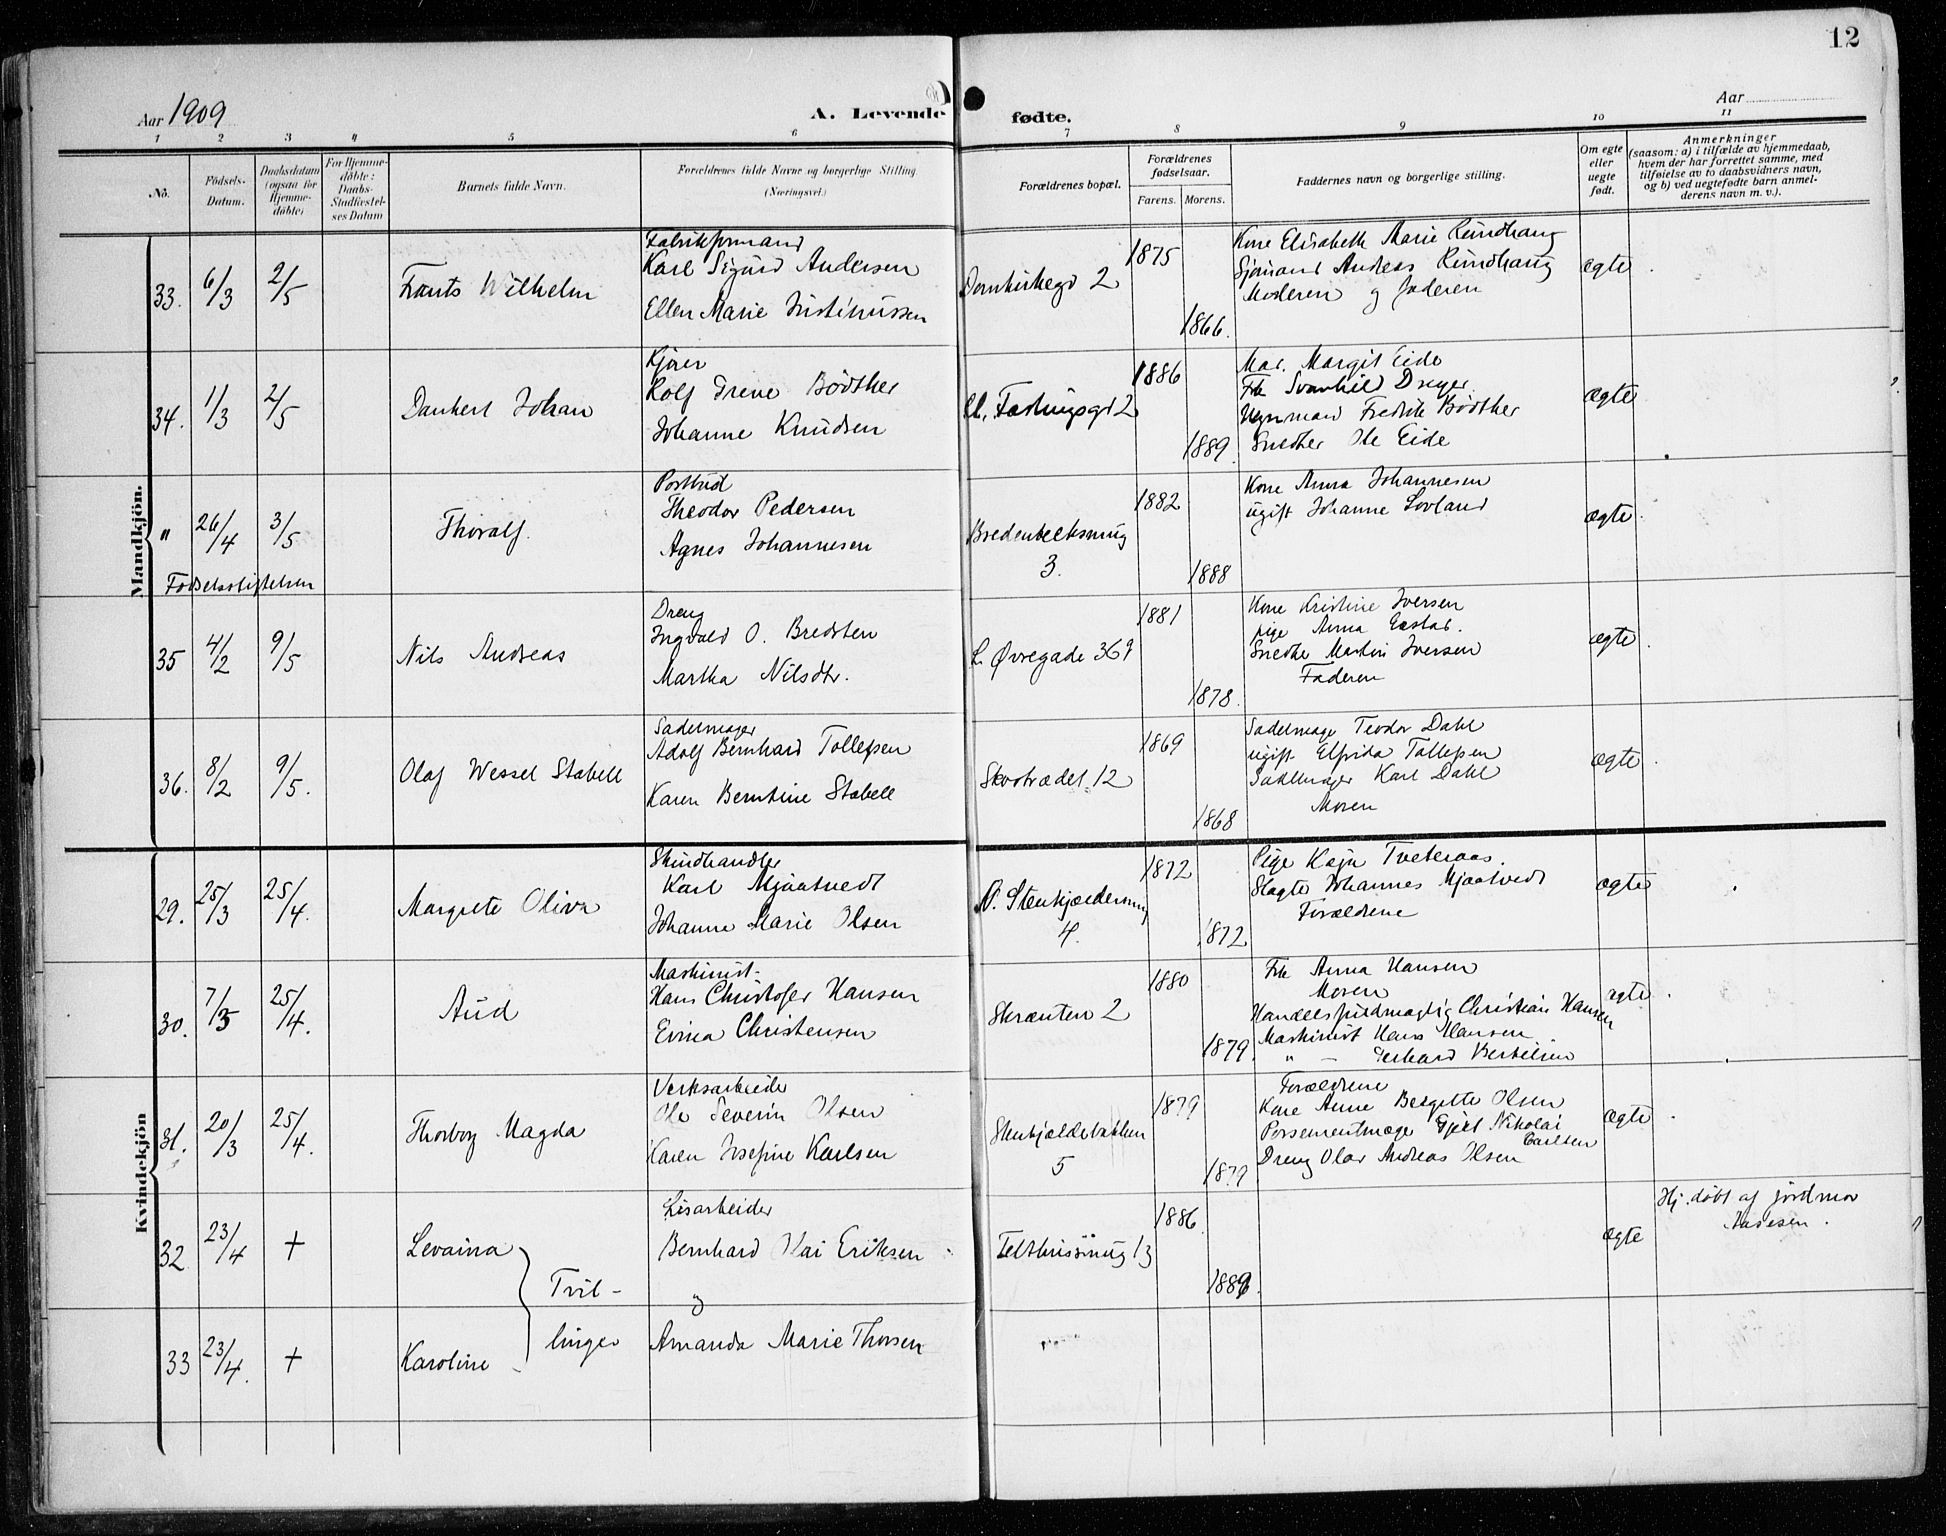 12
Aar 1909
A. Levende fødte.
Aar
1 2 3 4 5 6 7 8 9 10 11
No.
Fødsels-Datum.
Daabsdatum (ogsaa for Hjemme-døbte)
For Hjemme-døbte: Daabs-Stadfæstel-ses Datum
Barnets fulde Navn.
Forældrenes fulde Navne og borgerlige Stilling. (Næringsvei.)
Forældrenes bopæl.
Forældrenes fødselsaar.
Farens. Morens.
Faddernes navn og borgerlige stilling.
Om egte eller uegte født.
Anmerkninger (saasom: a) i tilfælde av hjemmedaab, hvem der har forrettet samme, med tilføielse av to daabsvidners navn, og b) ved uegtefødte barn anmelderens navn m. v.).
Mandkjøn.
33. 6/3 2/5 Frants Wilhelm
Fabrikformand
Karl Sigurd Andersen
Ellen Marie Justinussen
Domkirkegd 2
1875
1866.
Kone Elisabeth Marie Rundhaug
Sjømand Andreas Rundhaug
Moderen og Faderen
ægte
34. 1/3 2/5 Dankert Johan
Kjører
Rolf Irene Bødtker
Johanne Knudsen
2
1886
1889.
Mar. Margit Eide
Frk Svanhild Dreyer
Fredrik Bødtker
Snedker Ole Eide
ægte
" 26/4 3/5 Thoralf.
Fødselsstiftelsen
Postbud
Theodor Pedersen
Agnes Johannesen
Bredenbeksmug
3.
1882
1888
Kone Anna Johannesen
ugift Johanne Lovland
ægte
35 4/2 9/5 Nils Andreas
Dreng
Ingvald O. Bredsten
Martha Nilsdtr.
L. Øvregade 369
1881
1878.
Kone Kristine Iversen
pige Anna
Snedker Martin Iversen
Faderen
ægte
36. 8/2 9/5. Olaf Wessel Stabell
Sadelmager
Adolf Bernhard Tollefsen
Karen Berntine Stabell
Skostrædet 12
1869
1868
Sadelmage Teodor Dahl
ugift Elfrida Tollefsen
Sadelmager Karl Dahl
Moren
ægte
Kvindekjøn
29. 25/3 25/4. Margrete Oliva
Skindhandler
Karl Mjaatvedt
Johanne Marie Olsen
N. Stenkjeldersmug
4.
1872
1872
Pige Kaja Tveteraas.
Slagte Johannes Mjaatvedt
Forældrene
ægte
30. 7/3 25/4. Aud
Maskinist
Hans Christofer Hansen
Evina Christensen
Skrænten 2
1880
1879.
Frk Anna Hansen
Moren
Handelsfuldmægtig Christian Hansen
Maskinist Hans Hansen
" - Gerhard Bertelsen
ægte
31. 20/3 25/4. Thorborg Magda
Verksarbeide
Ole Severin Olsen
Karen Josefine Karlsen
Stenkjeldebakken
5
1879
1879
Forældrene
Kone Anne Bergitte Olsen
Possementmage Gjert Nikolai
Carlsen
Dreng Olav Andreas Olsen
ægte
32 23/4 + Levaina
Tvil-
Lisarbeider
Bernhard Olai Eriksen
og
Telthussmug 13
1886
ægte
Hj. døbt af jordmor
33 23/4. + Karoline
linger
Amanda Marie Thorsen